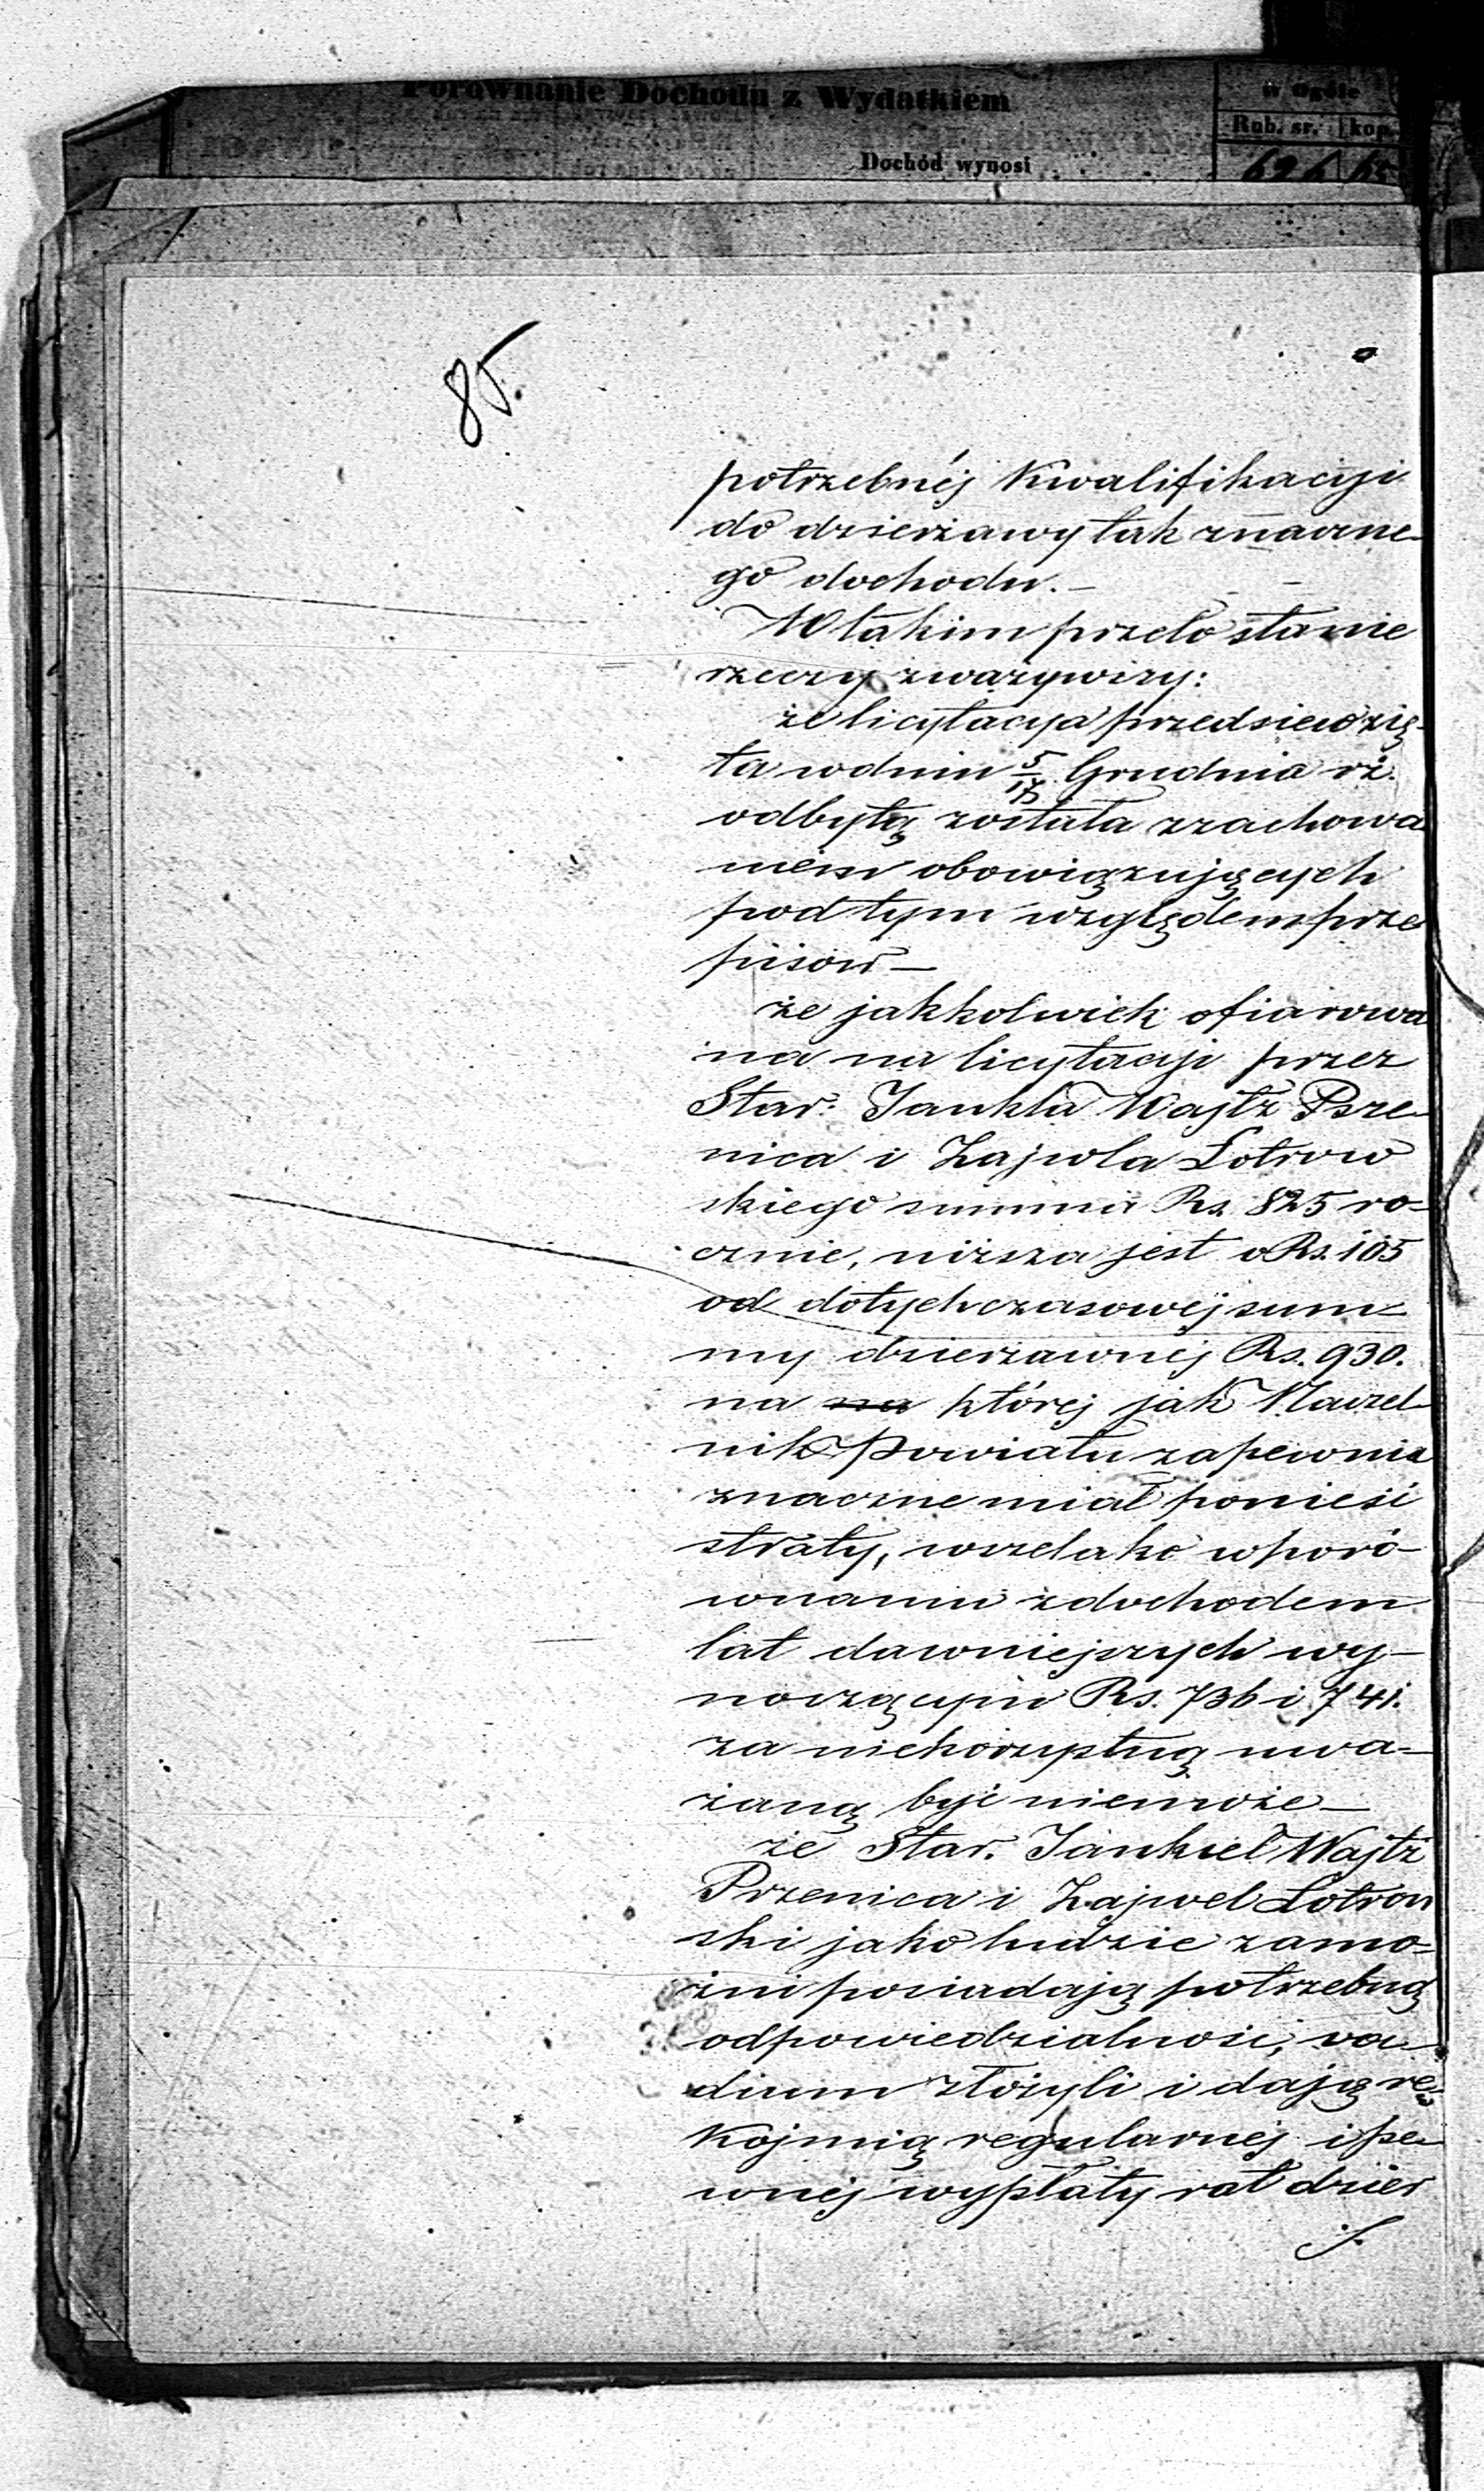 Porównanie Dochodu z Wydatkiem
w Ogóle
Rub. sr. kop.
Dochód wynosi
626 65
85.
potrzebnéj Kwalifikacyi
do dzierżawy tak znaczne-
go dochodu.—
W takim przeto stanie
rzeczy zważywszy:
że licytacya przedsiewzię-
ta w dniu 5/17 Grudnia rż.
odbytą została z zachowa
niem obowiązujących
pod tym względem prze
pisów—
że jakkolwiek ofiarowa
na na licytacyi przez
Star: Jankla Wajtz Psze-
nica i Zajwla Łotrow
skiego summa Rs. 825 ro-
cznie, niższa jest o Rs. 105
od dotychczasowéj sum-
my dzierżawnéj Rs. 930.
na na któréj jak Naczel-
nik Powiatu zapewnia
znaczne miał ponieść
straty, wszelako w poró-
wnaniu z dochodem
lat dawniejszych wy-
noszącym Rs. 736 i 741.
za niekorzystną uwa-
żaną być niemoże—
że Star. Jankiel Wajtz
Pszenica i Zajwel Łotrow
ski jako ludzie zamo-
żni posiadają potrzebną
odpowiedzialność, va-
dium złożyli i dają rę-
kojmią regularnéj i pe-
wnéj wypłaty rat dzier